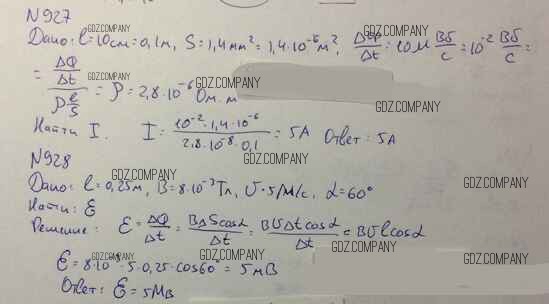 N927
Дано: l=10см=0,1м, S=1,4мм²=1,4·10⁻⁶м², ΔФ/Δt=10мВб/с=10⁻²Вб/с=
= (ΔФ/Δt)/(ρ l/S) = ρ=2,8·10⁻⁶ Ом·м
Найти I. I=(10⁻²·1,4·10⁻⁶)/(2,8·10⁻⁸·0,1)=5А Ответ: 5А
N928
Дано: l=0,25м, B=8·10⁻³Тл, υ·5/М/с, α=60°
Найти: Ɛ
Решение: Ɛ=ΔФ/Δt=BΔScosα/Δt=BυΔtcosα/Δt=Bυlcosα
Ɛ=8·10 ·5·0,25·cos60°=5мВ
Ответ: Ɛ=5мв
GDZ.COMPANY
GDZ.COMPANY
GDZ.COMPANY
GDZ.COMPANY
GDZ.COMPANY
GDZ.COMPANY
GDZ.COMPANY
GDZ.COMPANY
GDZ.COMPANY
GDZ.COMPANY
GDZ.COMPANY
GDZ.COMPANY